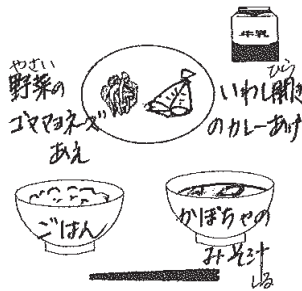 牛乳
やさい
野菜の
ゴママヨネーズ
あえ
ひら
いわし開き
のカレーあげ
ごはん
かぼちゃの
みそ汁
しる